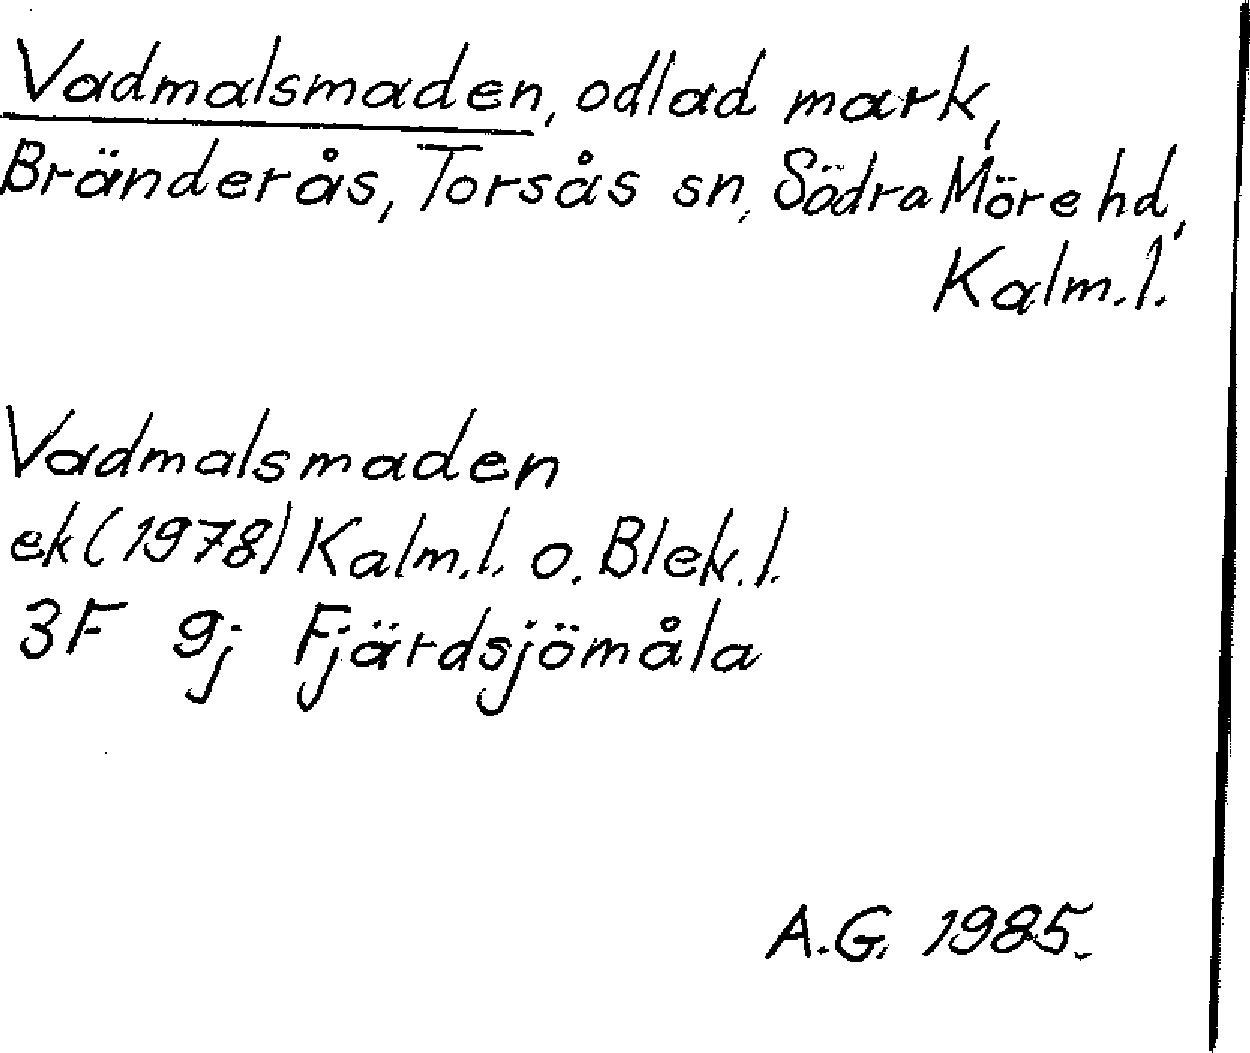 Vadmalsmaden, odlad mark,
Bränderås, Torsås sn, Södra Möre hd,
Kalm.l.
Vadmalsmaden
ek (1978) Kalm.l. o. Blek.l.
3F 9j Fjärdsjömåla
A.G. 1985.